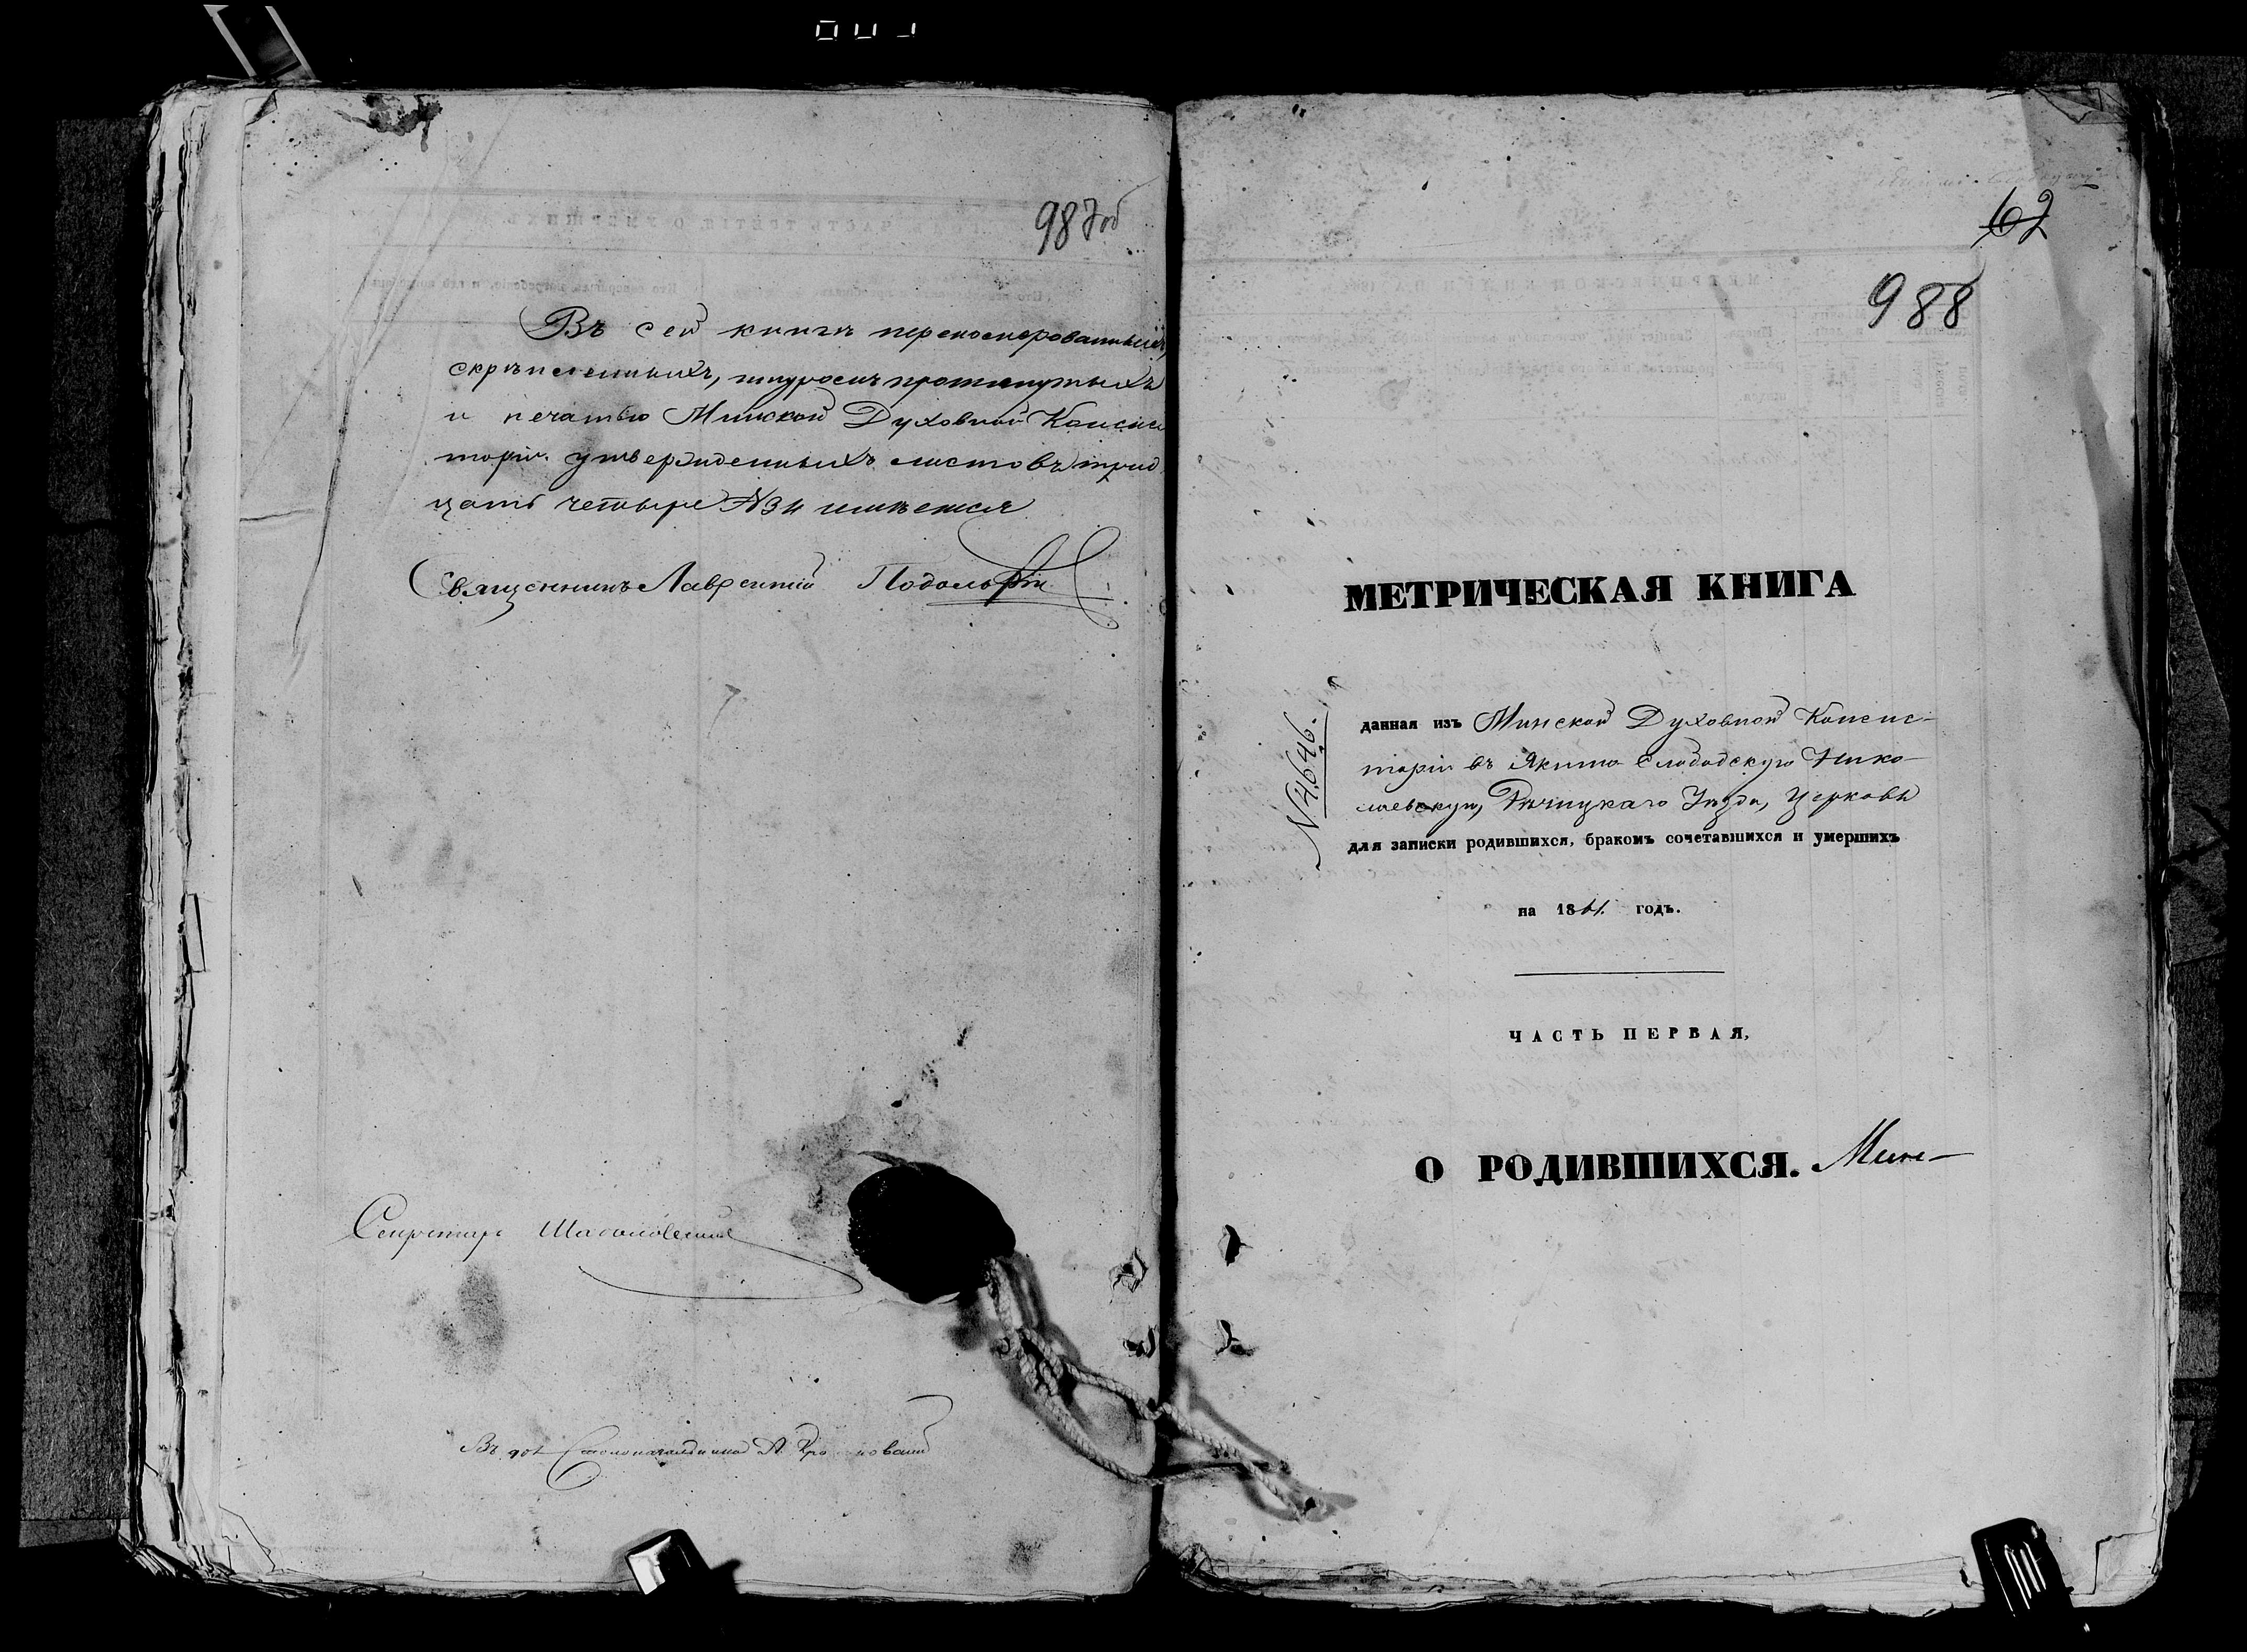 987об
Въ сей книгѣ перенумерованныхъ,
скрѣпленныхъ, шнуромъ протянутыхъ
и печатью Минской Духовной Консис
торіи утвержденныхъ листовъ трид
цать четыре №34 имѣется
Священникъ Лаврентій
Секретарь
Столоначальника А.
62
988
МЕТРИЧЕСКАЯ КНИГА
N 4646.
данная изъ Минской Духовной Консис-
торіи въ Якимо Слободскую Нико-
лаевскую, Рѣчицкаго Уѣзда, Церковь
для записки родившихся, бракомъ сочетавшихся и умершихъ
на 1861. годъ.
ЧАСТЬ ПЕРВАЯ,
О РОДИВШИХСЯ. Мин-